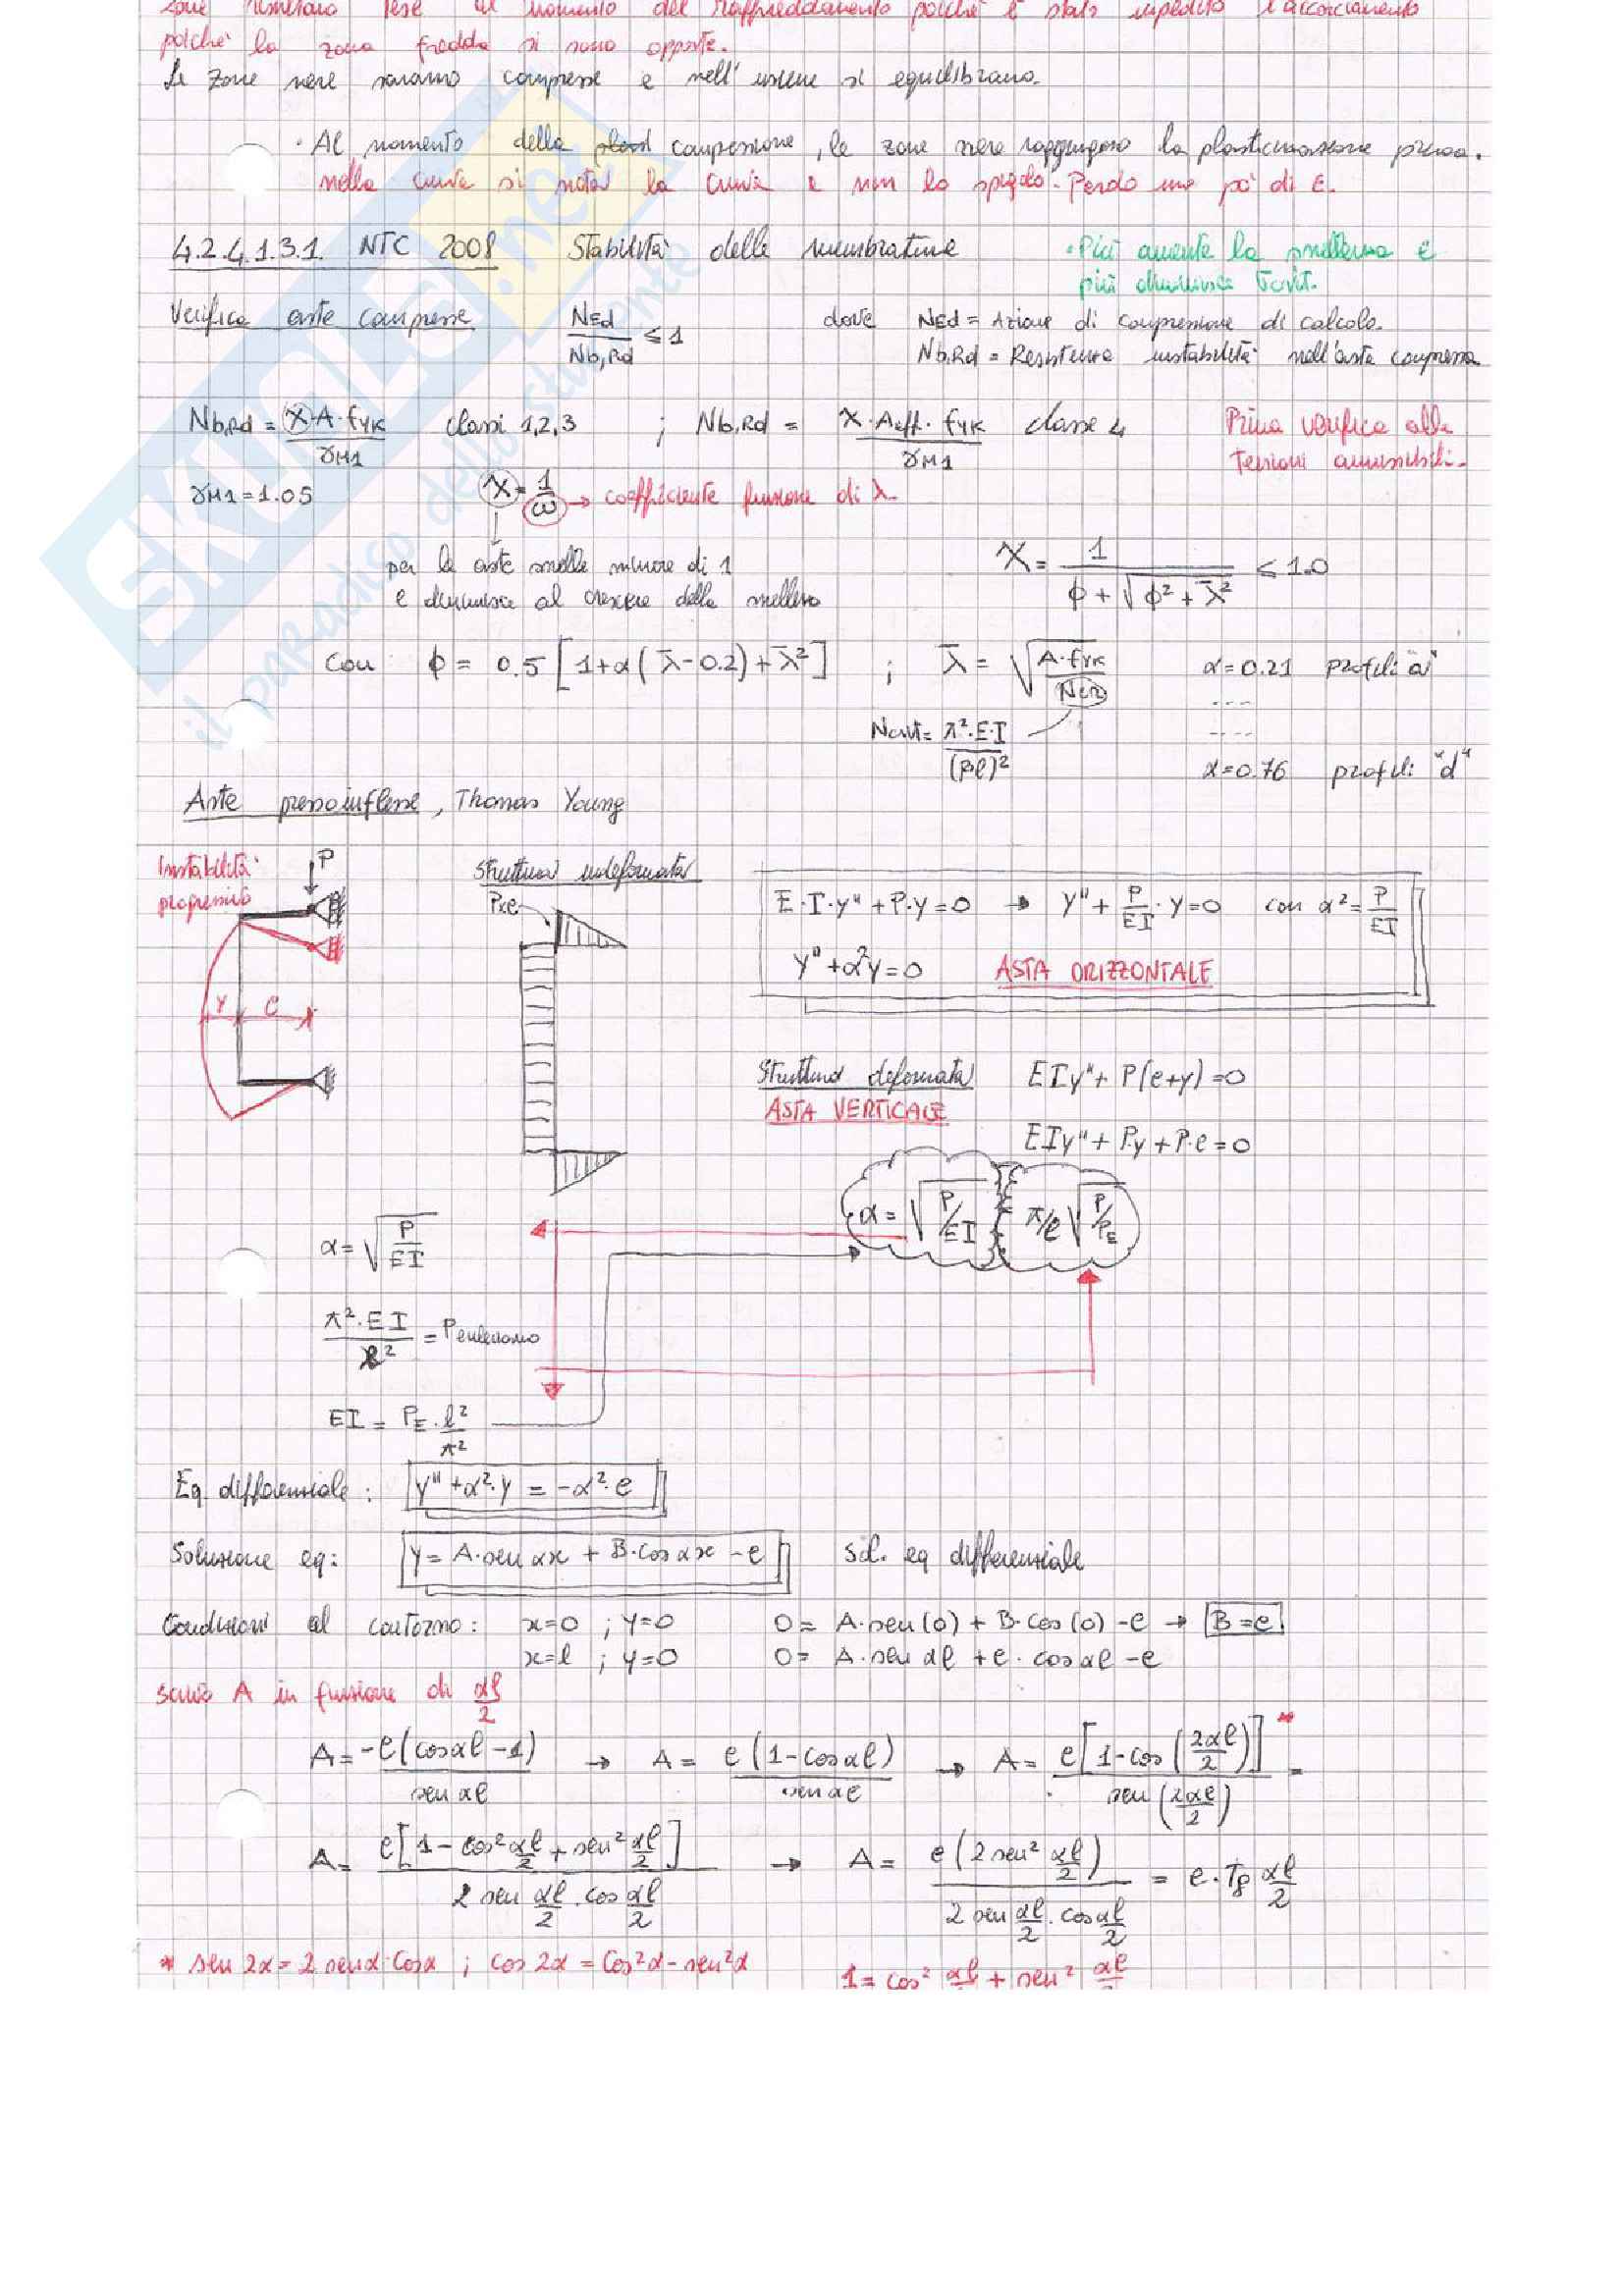 zone resteranno tese al momento del raffreddamento poiché è stato impedito l'accorciamento
poiché la zona fredda si sono opposte.
Le zone nere saranno compresse e nell'insieme si equilibrano.
· Al momento della compressione, le zone nere raggiungono la plasticizzazione prima.
nella curva si nota la curva e non lo spigolo. Perdo un po' di E.
4.2.4.1.3.1. NTC 2008 Stabilità delle membrature
· Più aumenta la snellezza e
più diminuisce σcrit.
Verifica aste compresse NEd/Nb,Rd ≤ 1 dove NEd = Azione di compressione di calcolo.
Nb,Rd = Resistenza instabilità nell'asta compressa
Nb,Rd = χ·A·fyk/γM1 classi 1,2,3 ; Nb,Rd = χ·Aeff·fyk/γM1 classe 4
Prima verifica alle
tensioni ammissibili.
γM1 = 1.05 χ = 1/ω → coefficiente funzione di λ.
per le aste snelle minore di 1
e diminuisce al crescere della snellezza
χ = 1/(ϕ + √(ϕ² + λ̄²)) ≤ 1.0
con ϕ = 0.5 [1+α(λ̄-0.2)+λ̄²] ; λ̄ = √(A·fyk/Ncr) α=0.21 profili "a"
....
Ncrit = π²·E·I/(βl)² ....
α=0.76 profili "d"
Aste pressoinflesse, Thomas Young
Instabilità
progressiva
P
Struttura indeformata
Pxe
E·I·y" + P·y = 0 → y" + P/EI · y = 0 con α² = P/EI
y" + α²y = 0 ASTA ORIZZONTALE
y e
Struttura deformata EIy" + P(e+y) = 0
ASTA VERTICALE
EIy" + Py + P·e = 0
α = √(P/EI) π/l √(P/PE)
α = √(P/EI)
π²·EI/l² = Peuleriano
EI = PE·l²/π²
Eq. differenziale: y" + α²·y = -α²·e
Soluzione eq: y = A·sen αx + B·cos αx - e sol. eq differenziale
Condizioni al contorno: x=0 ; y=0 0 = A·sen(0) + B·cos(0) - e → B=e
x=l ; y=0 0 = A·sen αl + e·cos αl - e
scrivo A in funzione di αl/2
A = -e(cosαl - 1)/sen αl → A = e(1-cosαl)/sen αl → A = e[1-cos(2αl/2)]/sen(2αl/2) * =
A = e[1-cos² αl/2 + sen² αl/2]/(2 sen αl/2 · cos αl/2) → A = e(2 sen² αl/2)/(2 sen αl/2 · cos αl/2) = e·Tg αl/2
* sen 2α = 2 senα·cosα ; cos 2α = cos²α - sen²α 1 = cos² αl/2 + sen² αl/2
SKUOLA.net
il paradiso dello studente